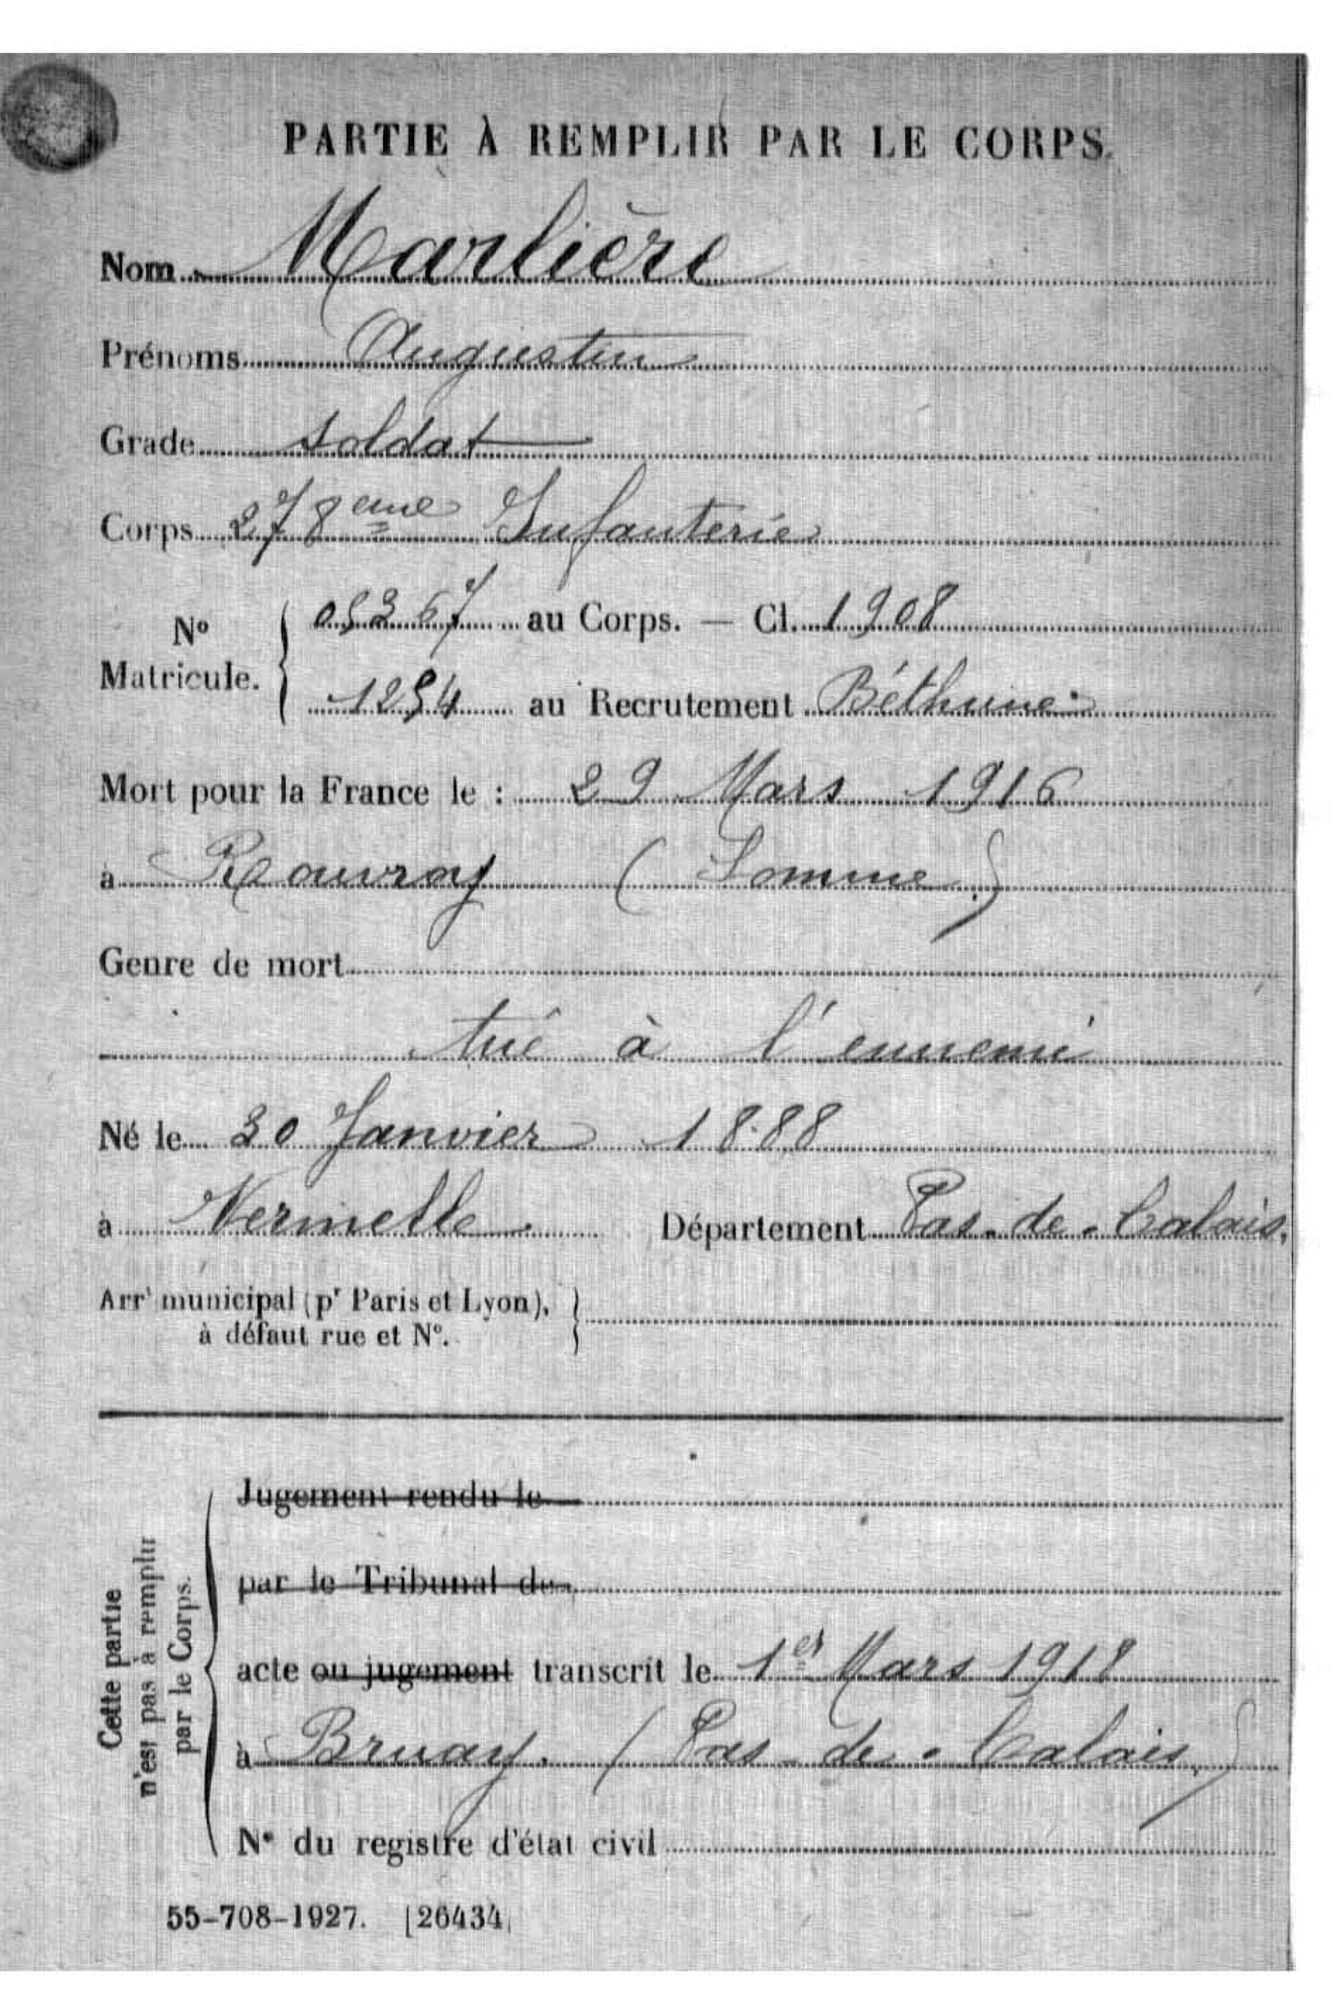 PARTIE À REMPLIR PAR LE CORPS.
Nom Marlière
Prénoms Augustin
Grade soldat
Corps 278eme Infanterie
No Matricule. 05367 au Corps. — Cl. 1908
1254 au Recrutement Béthune
Mort pour la France le : 29 Mars 1916
à Rouvroy (Somme)
Genre de mort
tué à l'ennemi
Né le 30 Janvier 1888
à Vermelle. Département Pas-de-Calais.
Arrt municipal (pr Paris et Lyon),
à défaut rue et No.
Cette partie
n'est pas à remplir
par le Corps.
Jugement rendu le
par le Tribunal de
acte ou jugement transcrit le 1er Mars 1918
à Bruay. (Pas-de-Calais.)
No du registre d'état civil
55-708-1927. [26434]